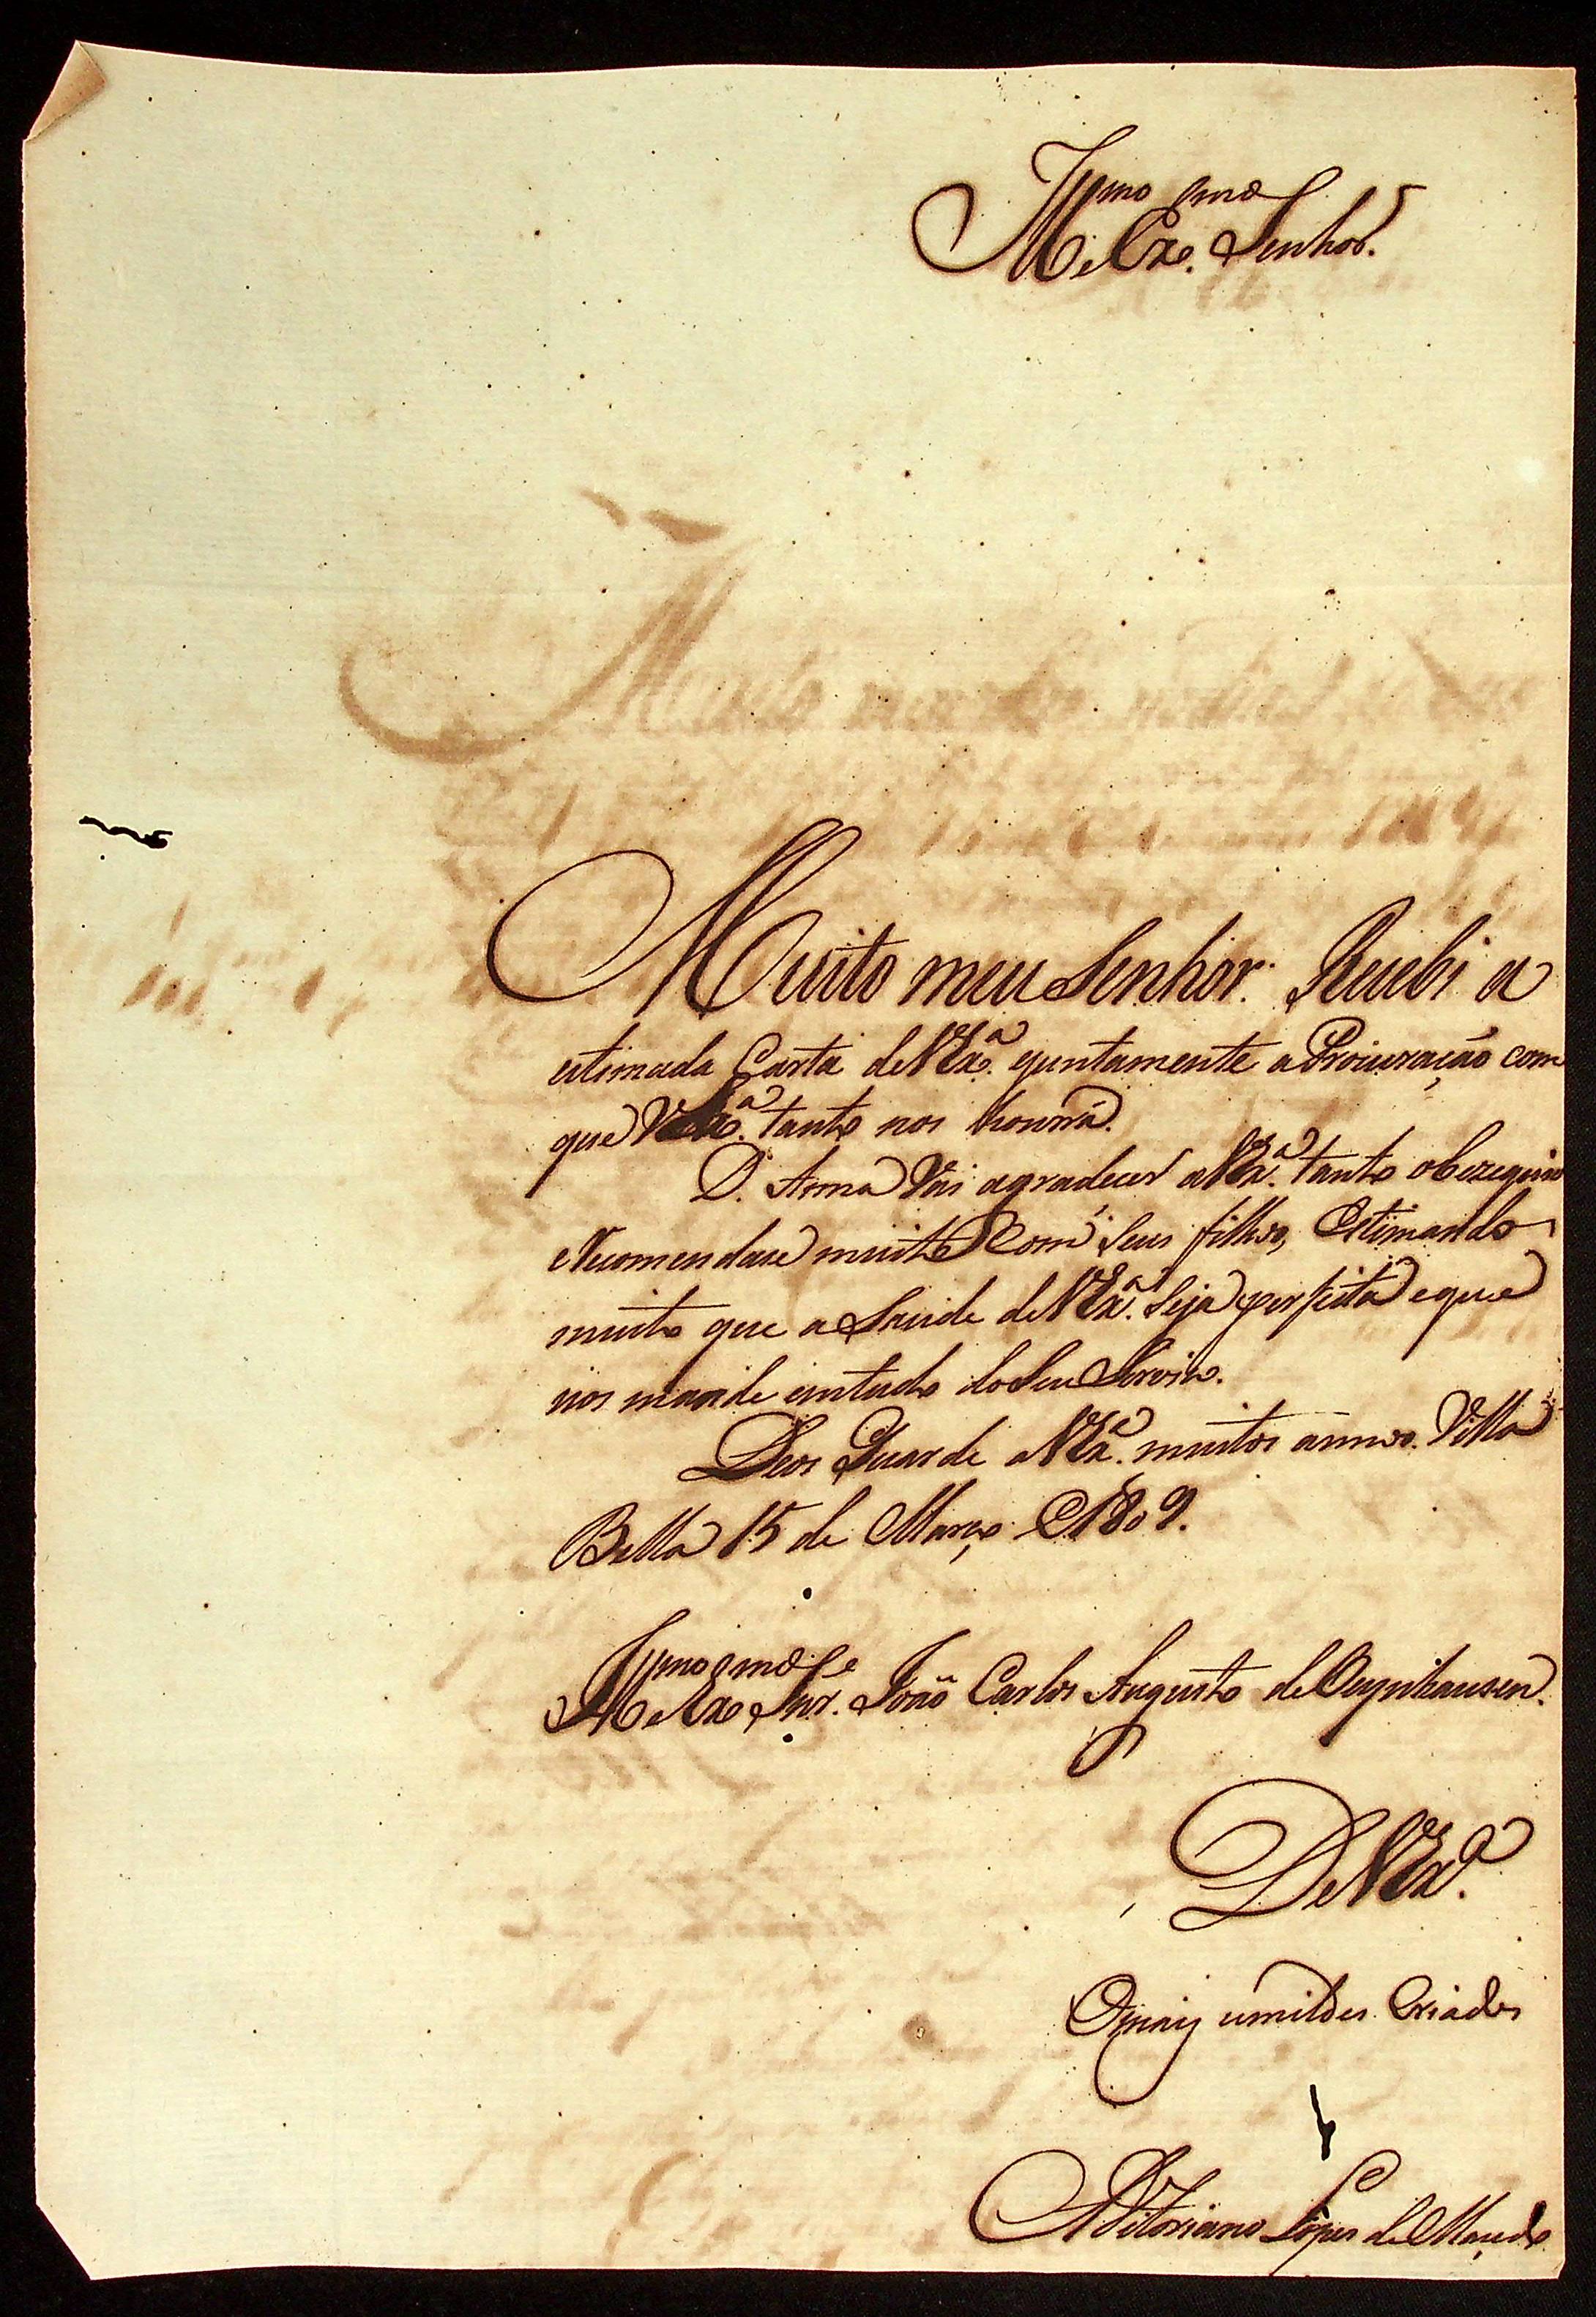 Illmo e Exmo Senhor.
Muito meu Senhor: Recebi a
estimada Carta de V Exa. ejuntamente a Procuração com
que V Exa. tanto nos honrra.
D. Anna Vai agradecer a V Exa. tanto obezequio
e Recomendace muito Com Seus filhos, Estimando
muito que a Saude de V Exa. Seja perfeita e que
nos mande emtudo do Seu Servico.
Deos Guarde a V Exa. muitos annos. Villa
Bella 15 de Março de 1809.
Illmo e Exmo Snr. João Carlos Augusto de Oeynhausen.
De V Exa.
O mais umildes Criados
Vitoriano Lopes de Maçedo